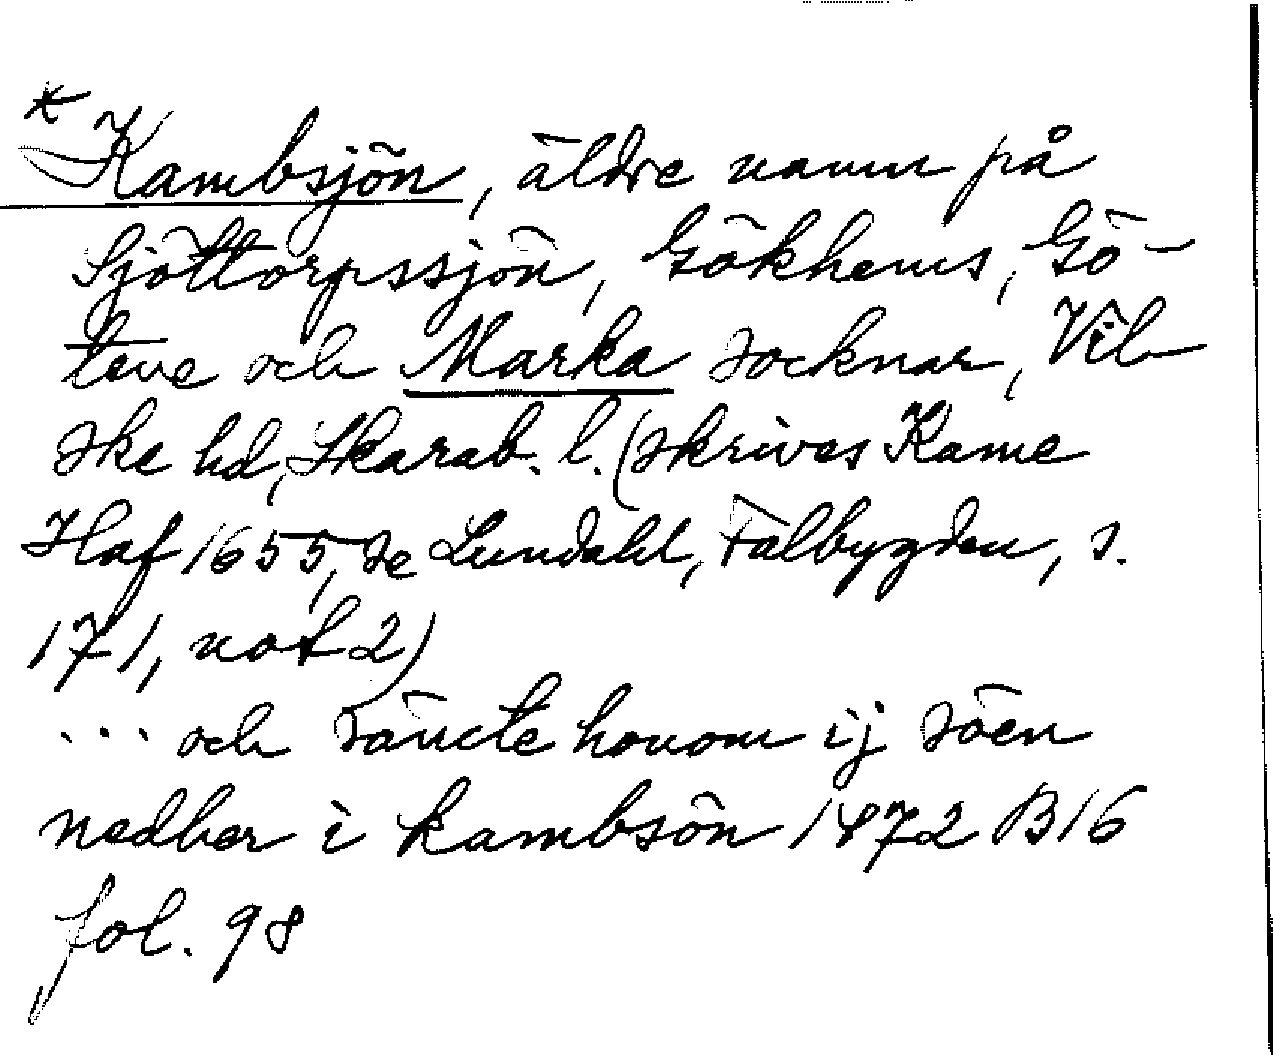 * Kambsjön, äldre namn på
Sjöttorpssjön, Gökhems, Gö-
teve och Marka socknar, Vil-
ske hd, Skarab. l. (skrives Kame
Haf 1655, se Lundahl, Falbygden, s.
171, not 2)
... och säncte honom ij söen
nedher i kambsön 1472 B16
fol. 98